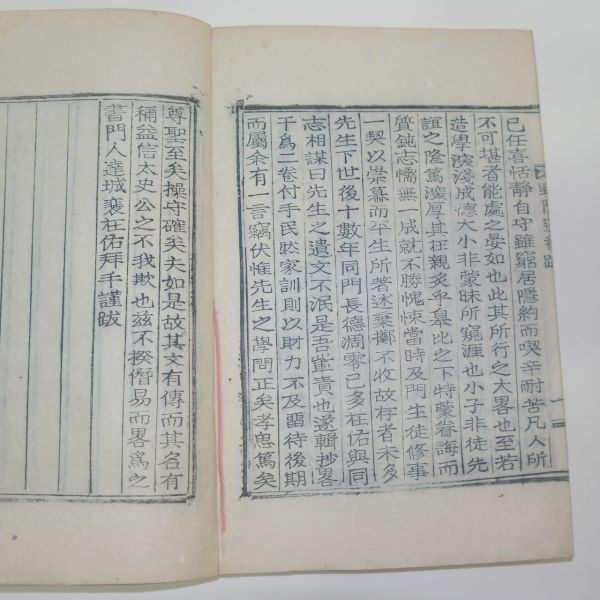 己任喜恬靜自守雖窮居隱約而喫辛耐苦凡人所
不可堪者能處之晏如也此其所行之大畧也至若
造學淺深成德大小非蒙昧所窺涯也小子非徒先
誼之隆篤深厚其在親炙乎皐比之下特蒙眷誨而
質鈍志懦無一成就不勝愧悚當時及門生徒修事
一契以崇慕而平生所著述棄擲不收故存者未多
先生下世後十數年同門長德凋零已多在佑與同
志相謀曰先生之遺文不泯是吾輩責也遂輯抄畧
干爲二卷付手民欥家訓則以財力不及留待後期
而屬余有一言竊伏惟先生之學問正矣孝思篤矣
尊聖至矣操守確矣夫如是故其文有傳而其名有
稱益信太史公之不我欺也玆不揆僭易而畧爲之
書門人達城裵在佑拜手謹跋